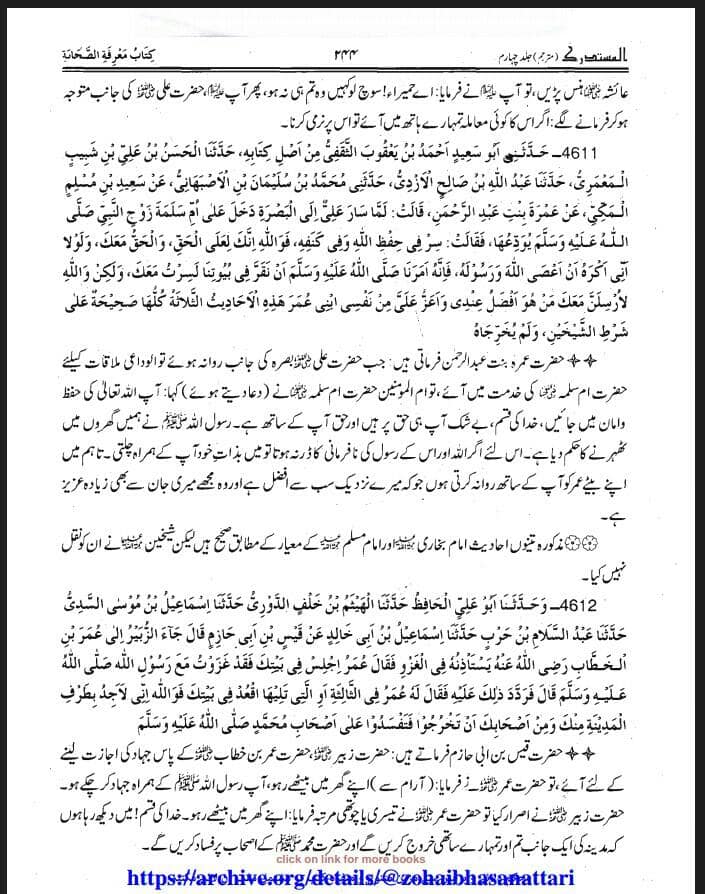 المستدرک (مترجم) جلد چہارم ۲۴۴ کِتَابُ مَعْرِفَةِ الصَّحَابَةِ
عائشہ رضی اللہ عنہا ہنس پڑیں، تو آپ ﷺ نے فرمایا: اے حمیراء! سوچ لو کہیں وہ تم ہی نہ ہو، پھر آپ ﷺ، حضرت علی رضی اللہ عنہ کی جانب متوجہ
ہو کر فرمانے لگے: اگر اس کا کوئی معاملہ تمہارے ہاتھ میں آئے تو اس پر نرمی کرنا۔
4611۔ حَدَّثَنِي اَبُو سَعِيدٍ اَحْمَدُ بْنُ يَعْقُوبَ الثَّقَفِيُّ مِنْ اَصْلِ كِتَابِهِ، حَدَّثَنَا الْحَسَنُ بْنُ عَلِيِّ بْنِ شَبِيبٍ
الْمَعْمَرِيُّ، حَدَّثَنَا عَبْدُ اللّٰهِ بْنُ صَالِحٍ الْاَزْدِيُّ، حَدَّثَنِي مُحَمَّدُ بْنُ سُلَيْمَانَ بْنِ الْاَصْبَهَانِيِّ، عَنْ سَعِيدِ بْنِ مُسْلِمٍ
الْمَكِّيِّ، عَنْ عَمْرَةَ بِنْتِ عَبْدِ الرَّحْمٰنِ، قَالَتْ: لَمَّا سَارَ عَلِيٌّ اِلَى الْبَصْرَةِ دَخَلَ عَلَى اُمِّ سَلَمَةَ زَوْجِ النَّبِيِّ صَلَّى
اللّٰهُ عَلَيْهِ وَسَلَّمَ يُوَدِّعُهَا، فَقَالَتْ: سِرْ فِي حِفْظِ اللّٰهِ وَفِي كَنَفِهِ، فَوَاللّٰهِ اِنَّكَ لَعَلَى الْحَقِّ، وَالْحَقُّ مَعَكَ، وَلَوْلا
اَنِّي اَكْرَهُ اَنْ اَعْصَى اللّٰهَ وَرَسُولَهُ، فَاِنَّهُ اَمَرَنَا صَلَّى اللّٰهُ عَلَيْهِ وَسَلَّمَ اَنْ نَقَرَّ فِي بُيُوتِنَا لَسِرْتُ مَعَكَ، وَلَكِنْ وَاللّٰهِ
لاُرْسِلَنَّ مَعَكَ مَنْ هُوَ اَفْضَلُ عِنْدِي وَاَعَزُّ عَلَيَّ مِنْ نَفْسِي ابْنِي عُمَرَ هَذِهِ الْاَحَادِيثُ الثَّلاثَةُ كُلُّهَا صَحِيحَةٌ عَلَى
شَرْطِ الشَّيْخَيْنِ، وَلَمْ يُخَرِّجَاهُ
✧✧ حضرت عمرہ بنت عبدالرحمٰن فرماتی ہیں: جب حضرت علی رضی اللہ عنہ بصرہ کی جانب روانہ ہوئے تو الوداعی ملاقات کیلئے
حضرت ام سلمہ رضی اللہ عنہا کی خدمت میں آئے، تو ام المومنین حضرت ام سلمہ رضی اللہ عنہا نے (دعا دیتے ہوئے) کہا: آپ اللہ تعالیٰ کی حفظ
وامان میں جائیں، خدا کی قسم، بے شک آپ ہی حق پر ہیں اور حق آپ کے ساتھ ہے۔ رسول اللہ ﷺ نے ہمیں گھروں میں
ٹھہرنے کا حکم دیا ہے۔ اس لئے اگر اللہ اور اس کے رسول کی نافرمانی کا ڈر نہ ہوتا تو میں بذات خود آپ کے ہمراہ چلتی۔ تاہم میں
اپنے بیٹے عمر کو آپ کے ساتھ روانہ کرتی ہوں جو کہ میرے نزدیک سب سے افضل ہے اور وہ مجھے میری جان سے بھی زیادہ عزیز
ہے۔
۞۞ مذکورہ تینوں احادیث امام بخاری رحمۃ اللہ علیہ اور امام مسلم رحمۃ اللہ علیہ کے معیار کے مطابق صحیح ہیں لیکن شیخین رحمۃ اللہ علیہما نے ان کو نقل
نہیں کیا۔
4612۔ وَحَدَّثَنَا اَبُوْ عَلِيٍّ الْحَافِظُ حَدَّثَنَا الْهَيْثَمُ بْنُ خَلْفٍ الدَّوْرِيُّ حَدَّثَنَا اِسْمَاعِيْلُ بْنُ مُوْسَى السَّدِيُّ
حَدَّثَنَا عَبْدُ السَّلَامِ بْنُ حَرْبٍ حَدَّثَنَا اِسْمَاعِيْلُ بْنُ اَبِى خَالِدٍ عَنْ قَيْسِ بْنِ اَبِي حَازِمٍ قَالَ جَآءَ الزُّبَيْرُ اِلٰى عُمَرَ بْنِ
الْخَطَّابِ رَضِيَ اللّٰهُ عَنْهُ يَسْتَأْذِنُهُ فِى الْغَزْوِ فَقَالَ عُمَرُ اِجْلِسْ فِى بَيْتِكَ فَقَدْ غَزَوْتَ مَعَ رَسُوْلِ اللّٰهِ صَلَّى اللّٰهُ
عَلَيْهِ وَسَلَّمَ قَالَ فَرَدَّدَ ذٰلِكَ عَلَيْهِ فَقَالَ لَهُ عُمَرُ فِى الثَّالِثَةِ اَوِ الَّتِى تَلِيْهَا اقْعُدْ فِى بَيْتِكَ فَوَاللّٰهِ اِنِّى لَاَجِدُ بِطَرْفِ
الْمَدِيْنَةِ مِنْكَ وَمِنْ اَصْحَابِكَ اَنْ تَخْرُجُوْا فَتَفْسُدُوْا عَلٰى اَصْحَابِ مُحَمَّدٍ صَلَّى اللّٰهُ عَلَيْهِ وَسَلَّمَ
✧✧ حضرت قیس بن ابی حازم فرماتے ہیں: حضرت زبیر رضی اللہ عنہ، حضرت عمر بن خطاب رضی اللہ عنہ کے پاس جہاد کی اجازت لینے
کے لئے آئے، تو حضرت عمر رضی اللہ عنہ نے فرمایا: (آرام سے) اپنے گھر میں بیٹھے رہو، آپ رسول اللہ ﷺ کے ہمراہ جہاد کر چکے ہو۔
حضرت زبیر رضی اللہ عنہ نے اصرار کیا تو حضرت عمر رضی اللہ عنہ نے تیسری یا چوتھی مرتبہ فرمایا: اپنے گھر میں بیٹھے رہو۔ خدا کی قسم! میں دیکھ رہا ہوں
کہ مدینہ کی ایک جانب تم اور تمہارے ساتھی خروج کریں گے اور حضرت محمد ﷺ کے اصحاب پر فساد کریں گے۔
click on link for more books
https://archive.org/details/@zohaibhasanattari